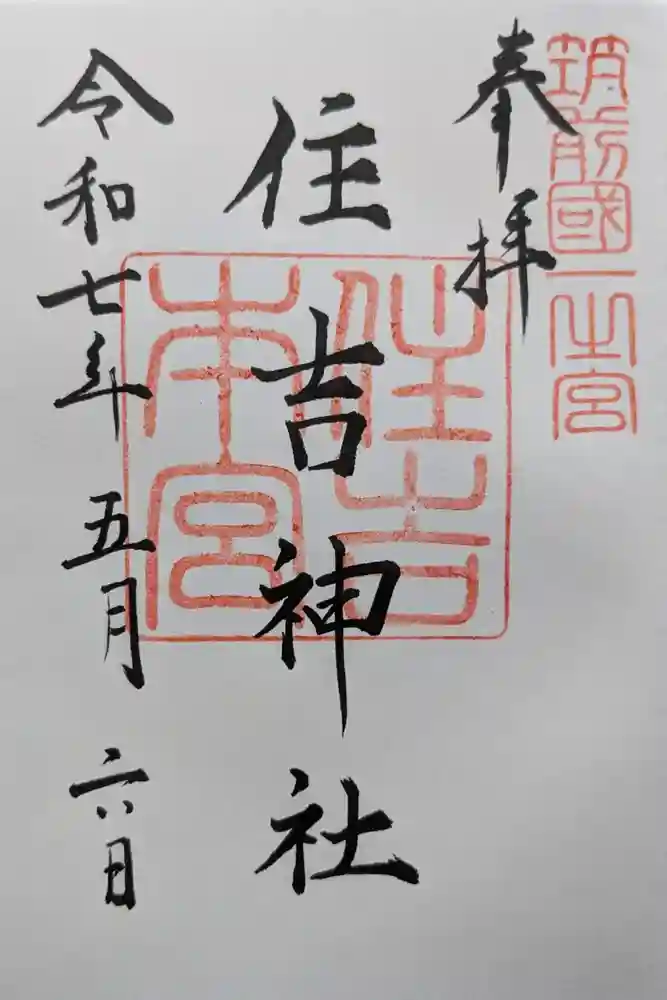 筑前國一之宮
奉拝
住吉神社
住吉
本宮
令和七年五月六日